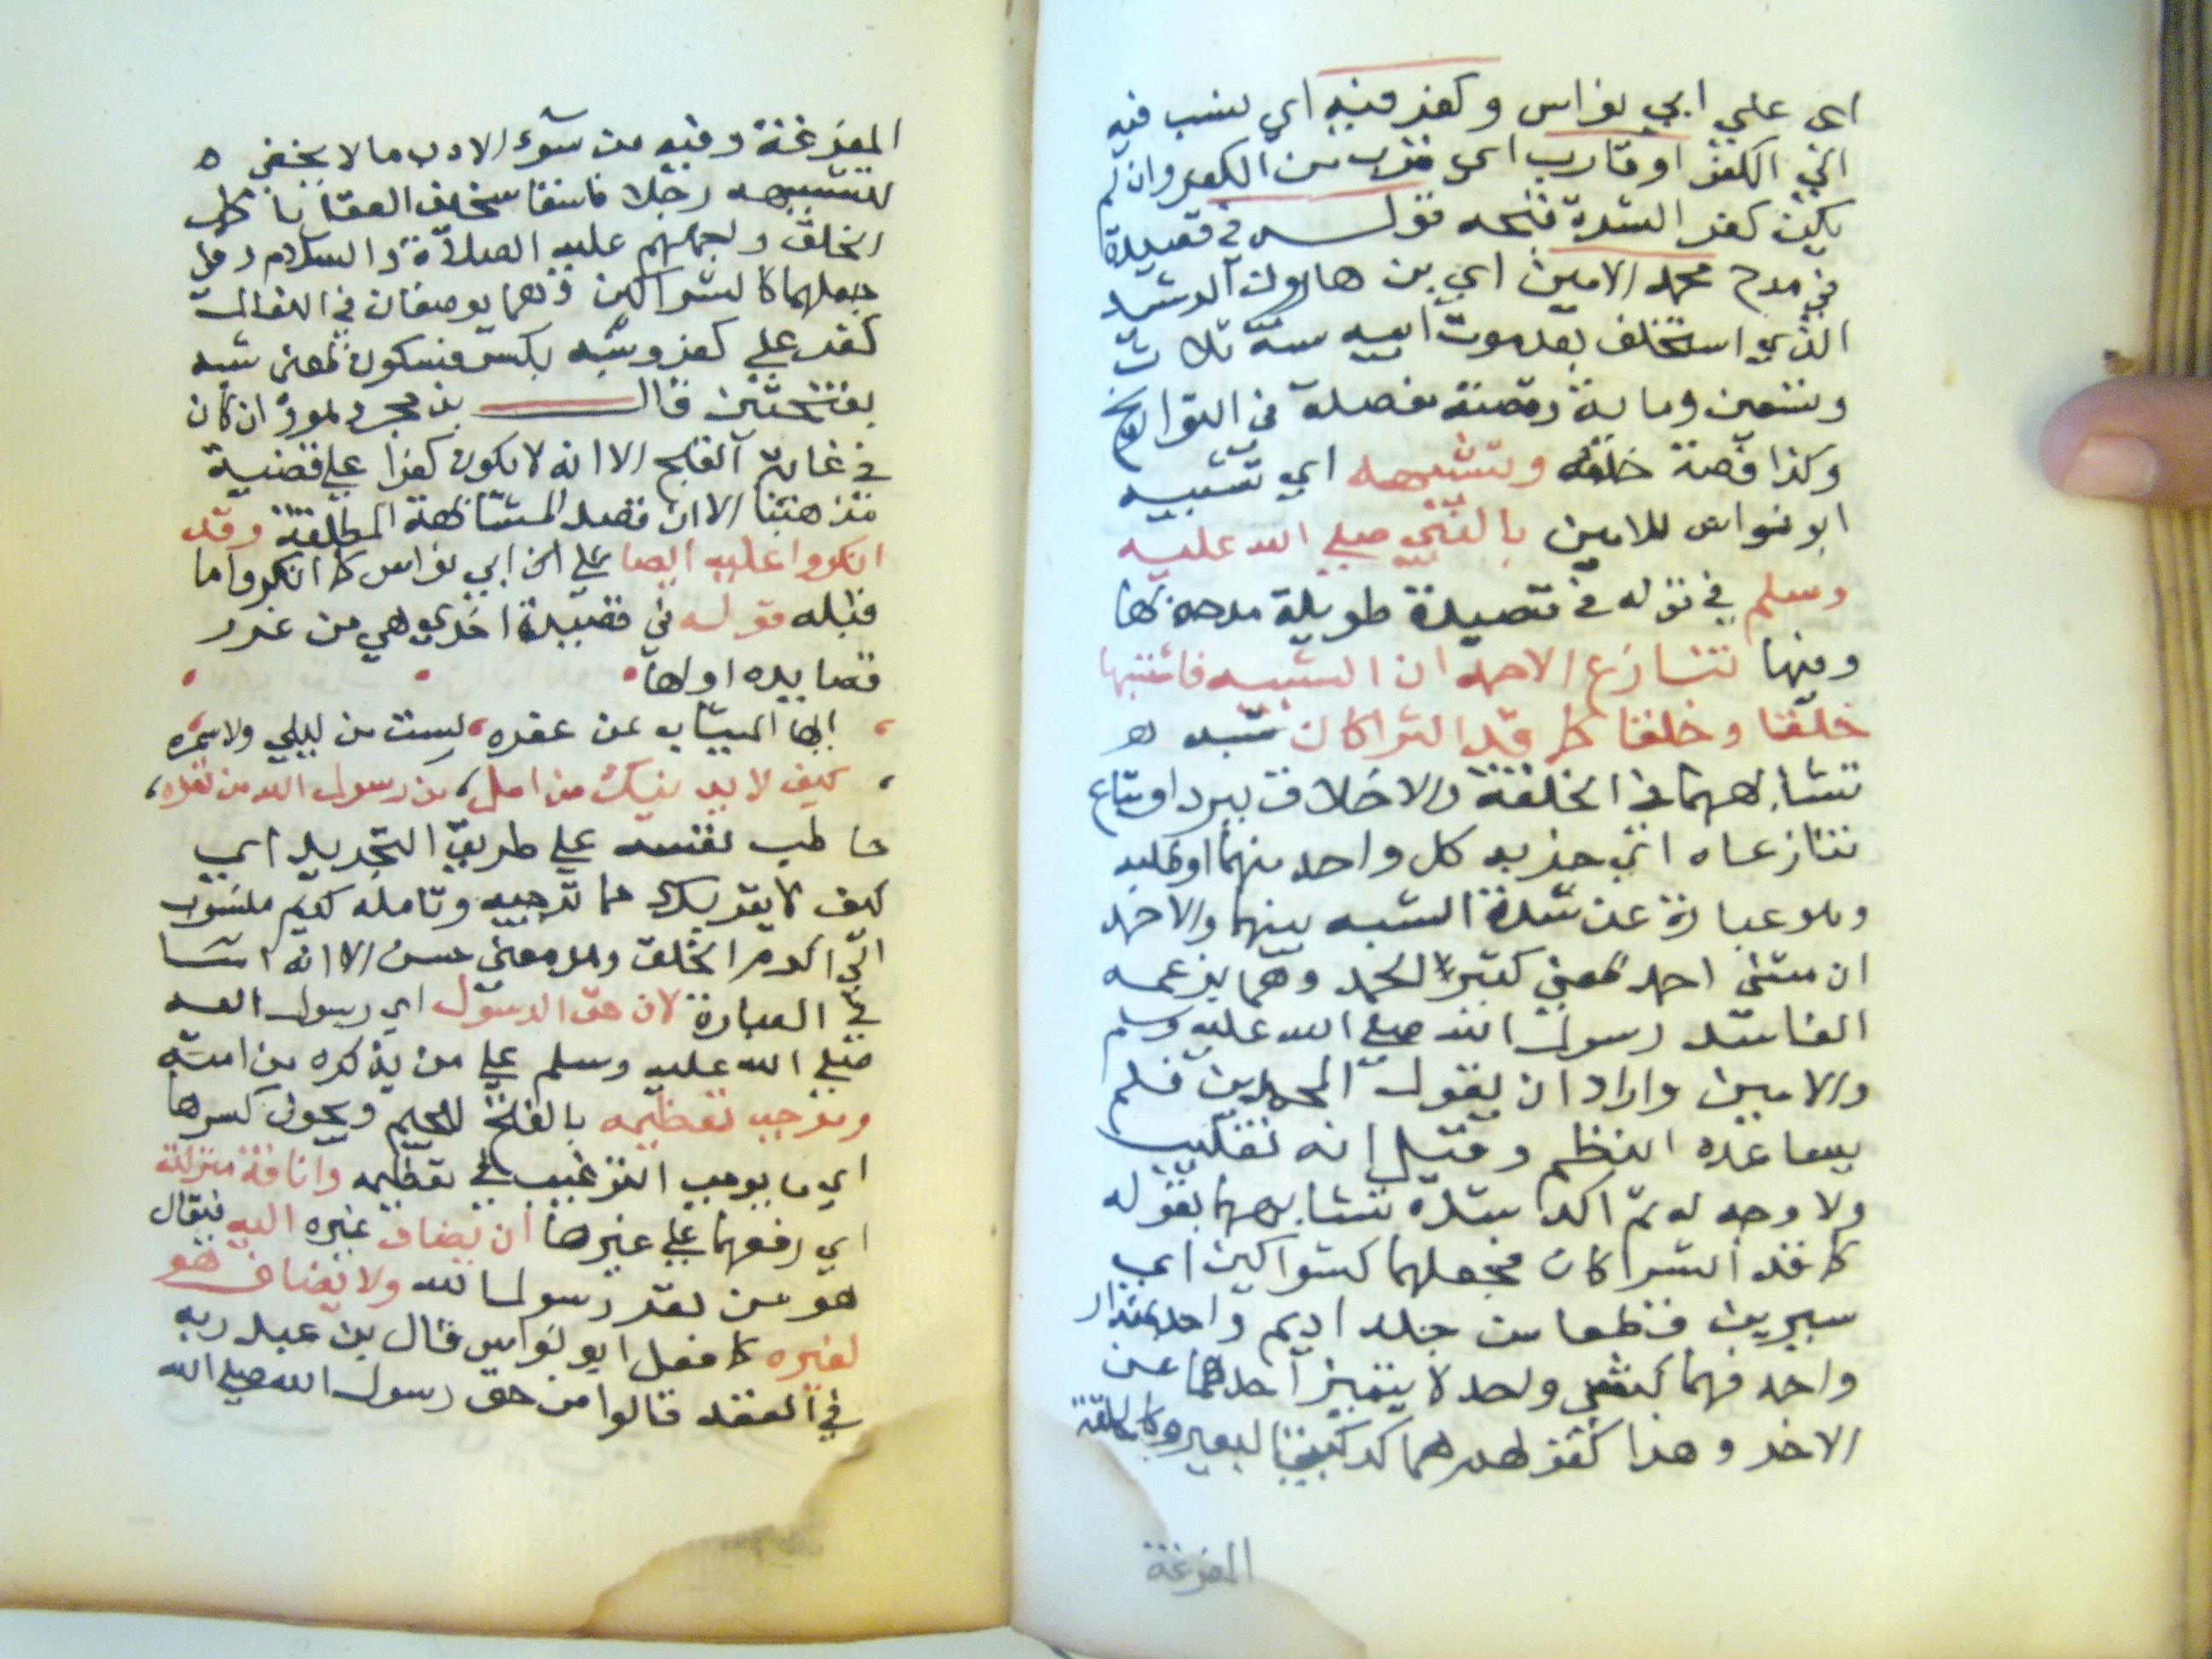 اى على ابي نواس وكفر فيه اي نسب فيه
الي الكفر او قارب اى قرب من الكفر وان لم
يكن كفر الشدة قبحه قوله في قصيدة
في مدح محمد الامين اي بن هارون الرشيد
الذي استخلف بعد موت ابيه سنة ثلاث
وتسعين وماية وقصته مفصلة في التواريخ
وكذا قصة خلفه وتشبيهه اي تشبيه
ابو نواس للامين بالنبي صلي الله عليه
وسلم في قوله في قصيدة طويلة مدحه بها
ومنها تنازع الاحمدان الشبيه فاشتبها
خلقا وخلقا كما قد الشراكان شبه هو
تشابههما في الخلقة والاخلاق ببرد اومتاع
تنازعاه اي جذبه كل واحد منهما او طلبه
وهو عبارة عن شدة الشبه بينهما والاحمد
ان مثنى احمد بمعني كثير الحمد وهما بزعمه
الفاسد رسول الله صلي الله عليه وسلم
والامين واراد ان يقول المحمدين فلم
يساعده النظم وقيل انه تغليب
ولا وجه له ثم اكد شدة تشابههما بقوله
كما قد الشراكان فجعلهما كشراكين اي
سيرين قطعا من جلد اديم واحد بمقدار
واحد فهما كشي واحد لا يتميز احدهما عن
الاخر وهذا كفر
المفرغة
المفرغة وفيه من سوء الادب ما لا يخفي ه
لتشبيهه رجلا فاسقا سخيف العقل باكمل
الخلق واجملهم عليه الصلاة والسلام وقد
جعلهما كالشراكين وهما يوصفان في
كفر علي كفر وشبه بكسر فسكون بمعنى شبه
بفتحتين قال بن مجرد لمور ان كان
في غاية القبح الا انه لا يكون كفرا علي قضية
مذهبنا الا ان قصد المشابهة المطلقة وقد
انكروا عليه ايضا علي ابي نواس كما انكروا ما
قبله قوله في قصيدة اخرى وهي من غرر
قصايده اولها
ايها المنتاب عن عفره لست من ليلي ولا سمره
كيف لا يدنيك من امل من رسول الله من نفره
خاطب نفسه علي طريق التجريد اي
كيف لا يقربك مما ترجيه وتامله كريم منسوب
الي اكرم الخلق وهو معنى حسن الا انه اسا
في العبارة لان حق الرسول اي رسول الله
صلي الله عليه وسلم علي من يذكره من امته
وموجب تعظيمه بالفتح للجيم ويجوز كسرها
اي ما يوجب الترغيب في تعظيمه وانافة منزلته
اي رفعهما علي غيرها ان يضاف غيره اليه فيقال
هو من نفر رسول الله ولا يضاف هو
لغيره كما فعل ابو نواس قال بن عبد ربه
في العقد قالوا من حق رسول الله صلي الله